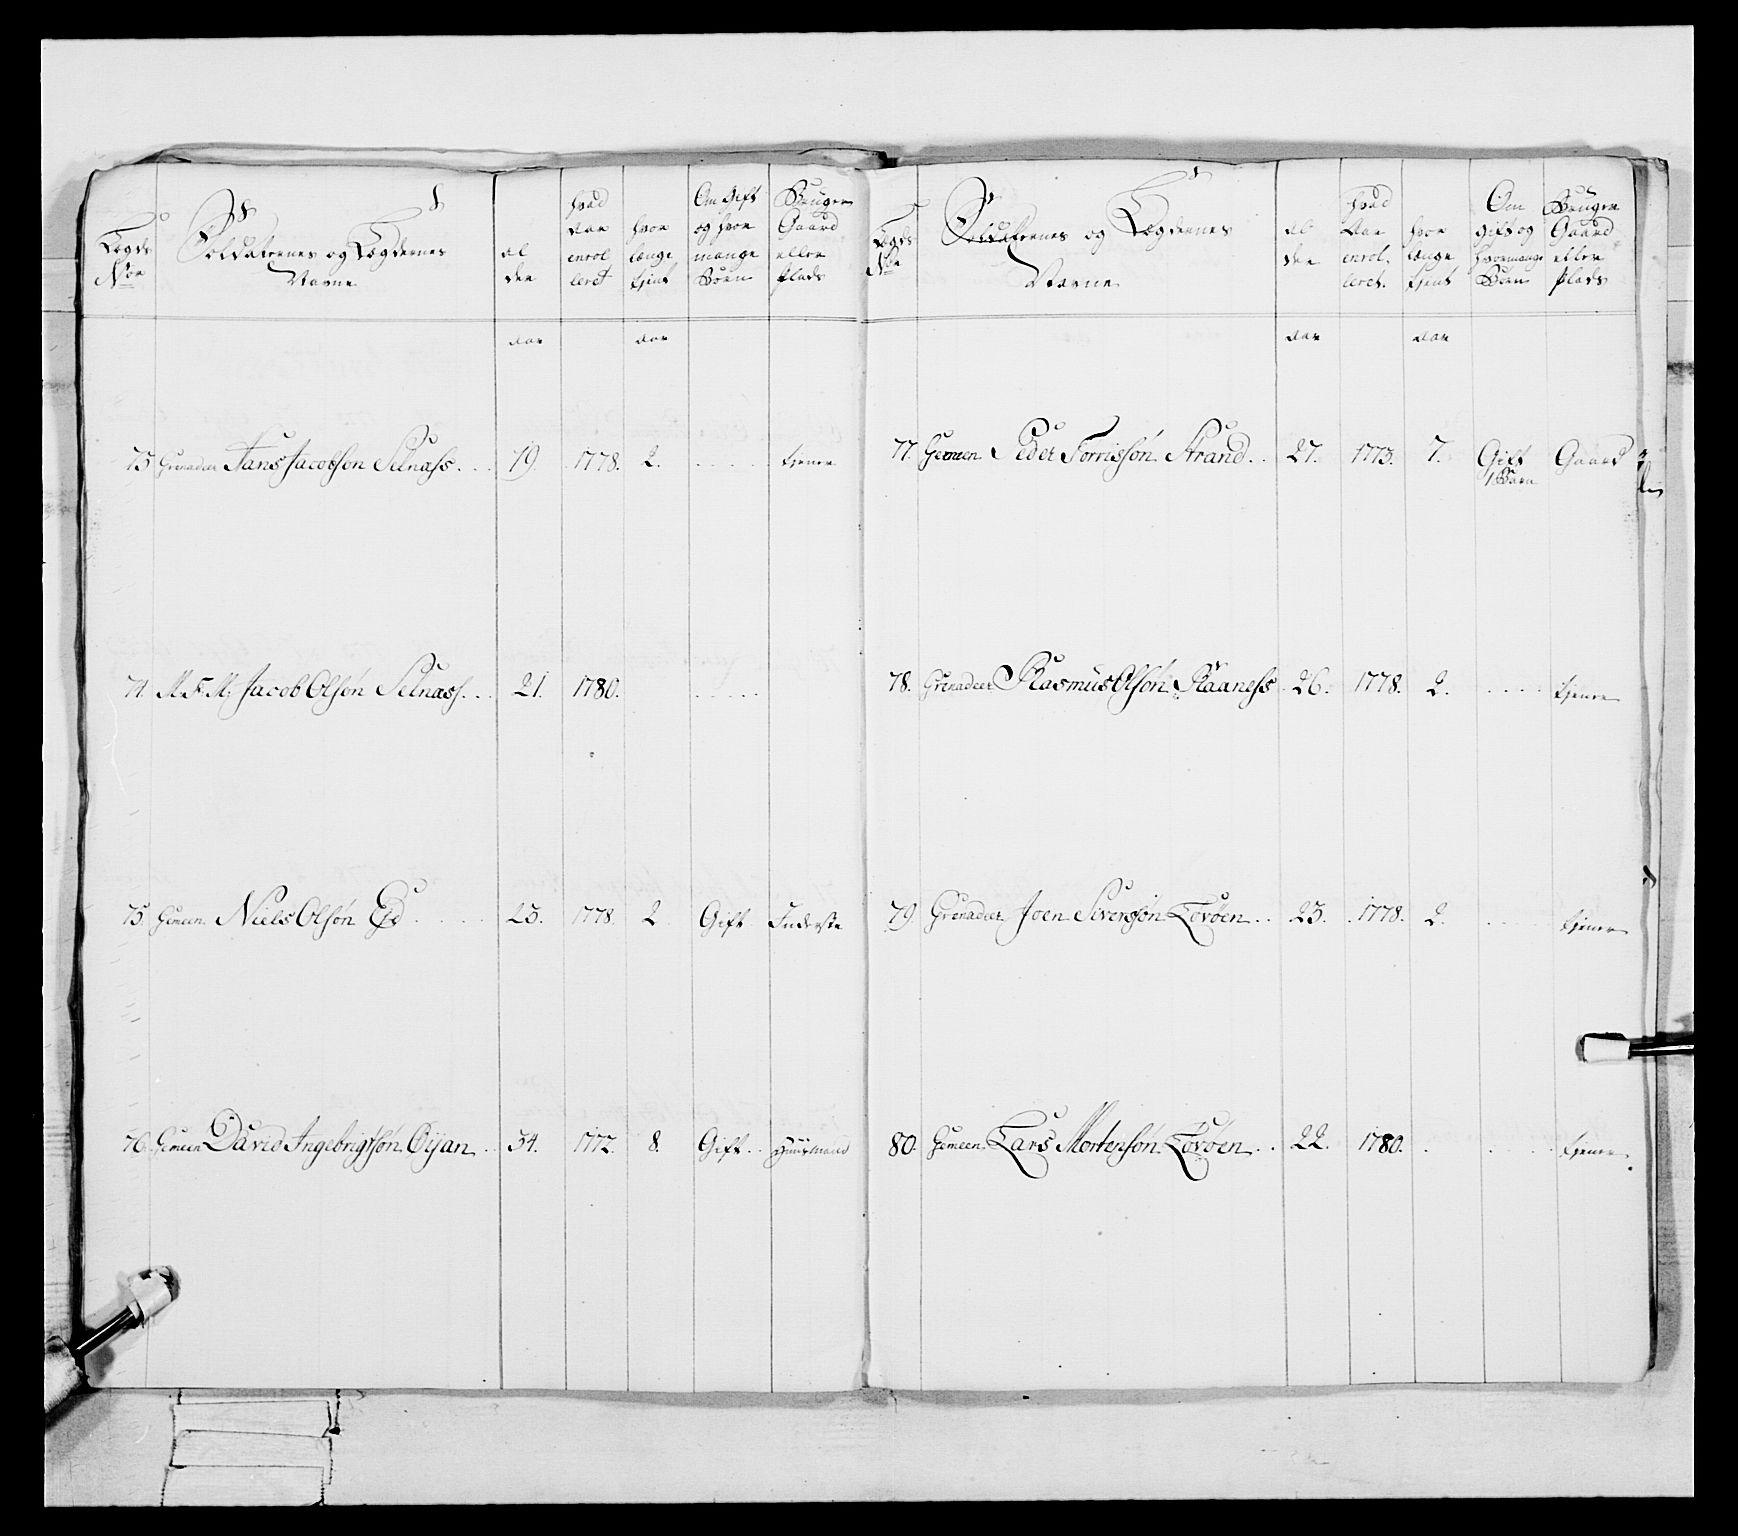 Lægds Nor | Soldaternes og Lægdernes Navne | al der | hvad Aar enrolleret | hvor længe tjent | Om Gift og hvor mange Børn | Bruger Gaard eller Plads
aar | aar
73. Grenadeer Hans Jacobsøn Selnæss. 19. 1778. 2. tjener
74. M. F. M. Jacob Olsøn Selnæss. 21. 1780.
75. Gemeen Niels Olsøn Eid 23. 1778. 2 Gift Inderste
76. Gemeen David Ingebrigtsøn Øijan 34. 1772. 8. Gift Huusmand
Lægds Nor | Soldaternes og Lægdernes Navne | al der | hvad Aar enrolleret. | hvor længe tjent | Om gift og hvormange Børn | Bruger Gaard eller Plads
aar | aar
77. Gemeen Peder Torrissøn Strand 27. 1773. 7. Gift Gaard
1 Barn
78. Grenadeer Rasmus Olsøn Raaness 26. 1778. 2. tjener
79. Grenadeer Joen Siverssøn Lovøen 23. 1778. 2. tjener
80. Gemeen Lars Mortensøn Lovøen 22. 1780. tjener